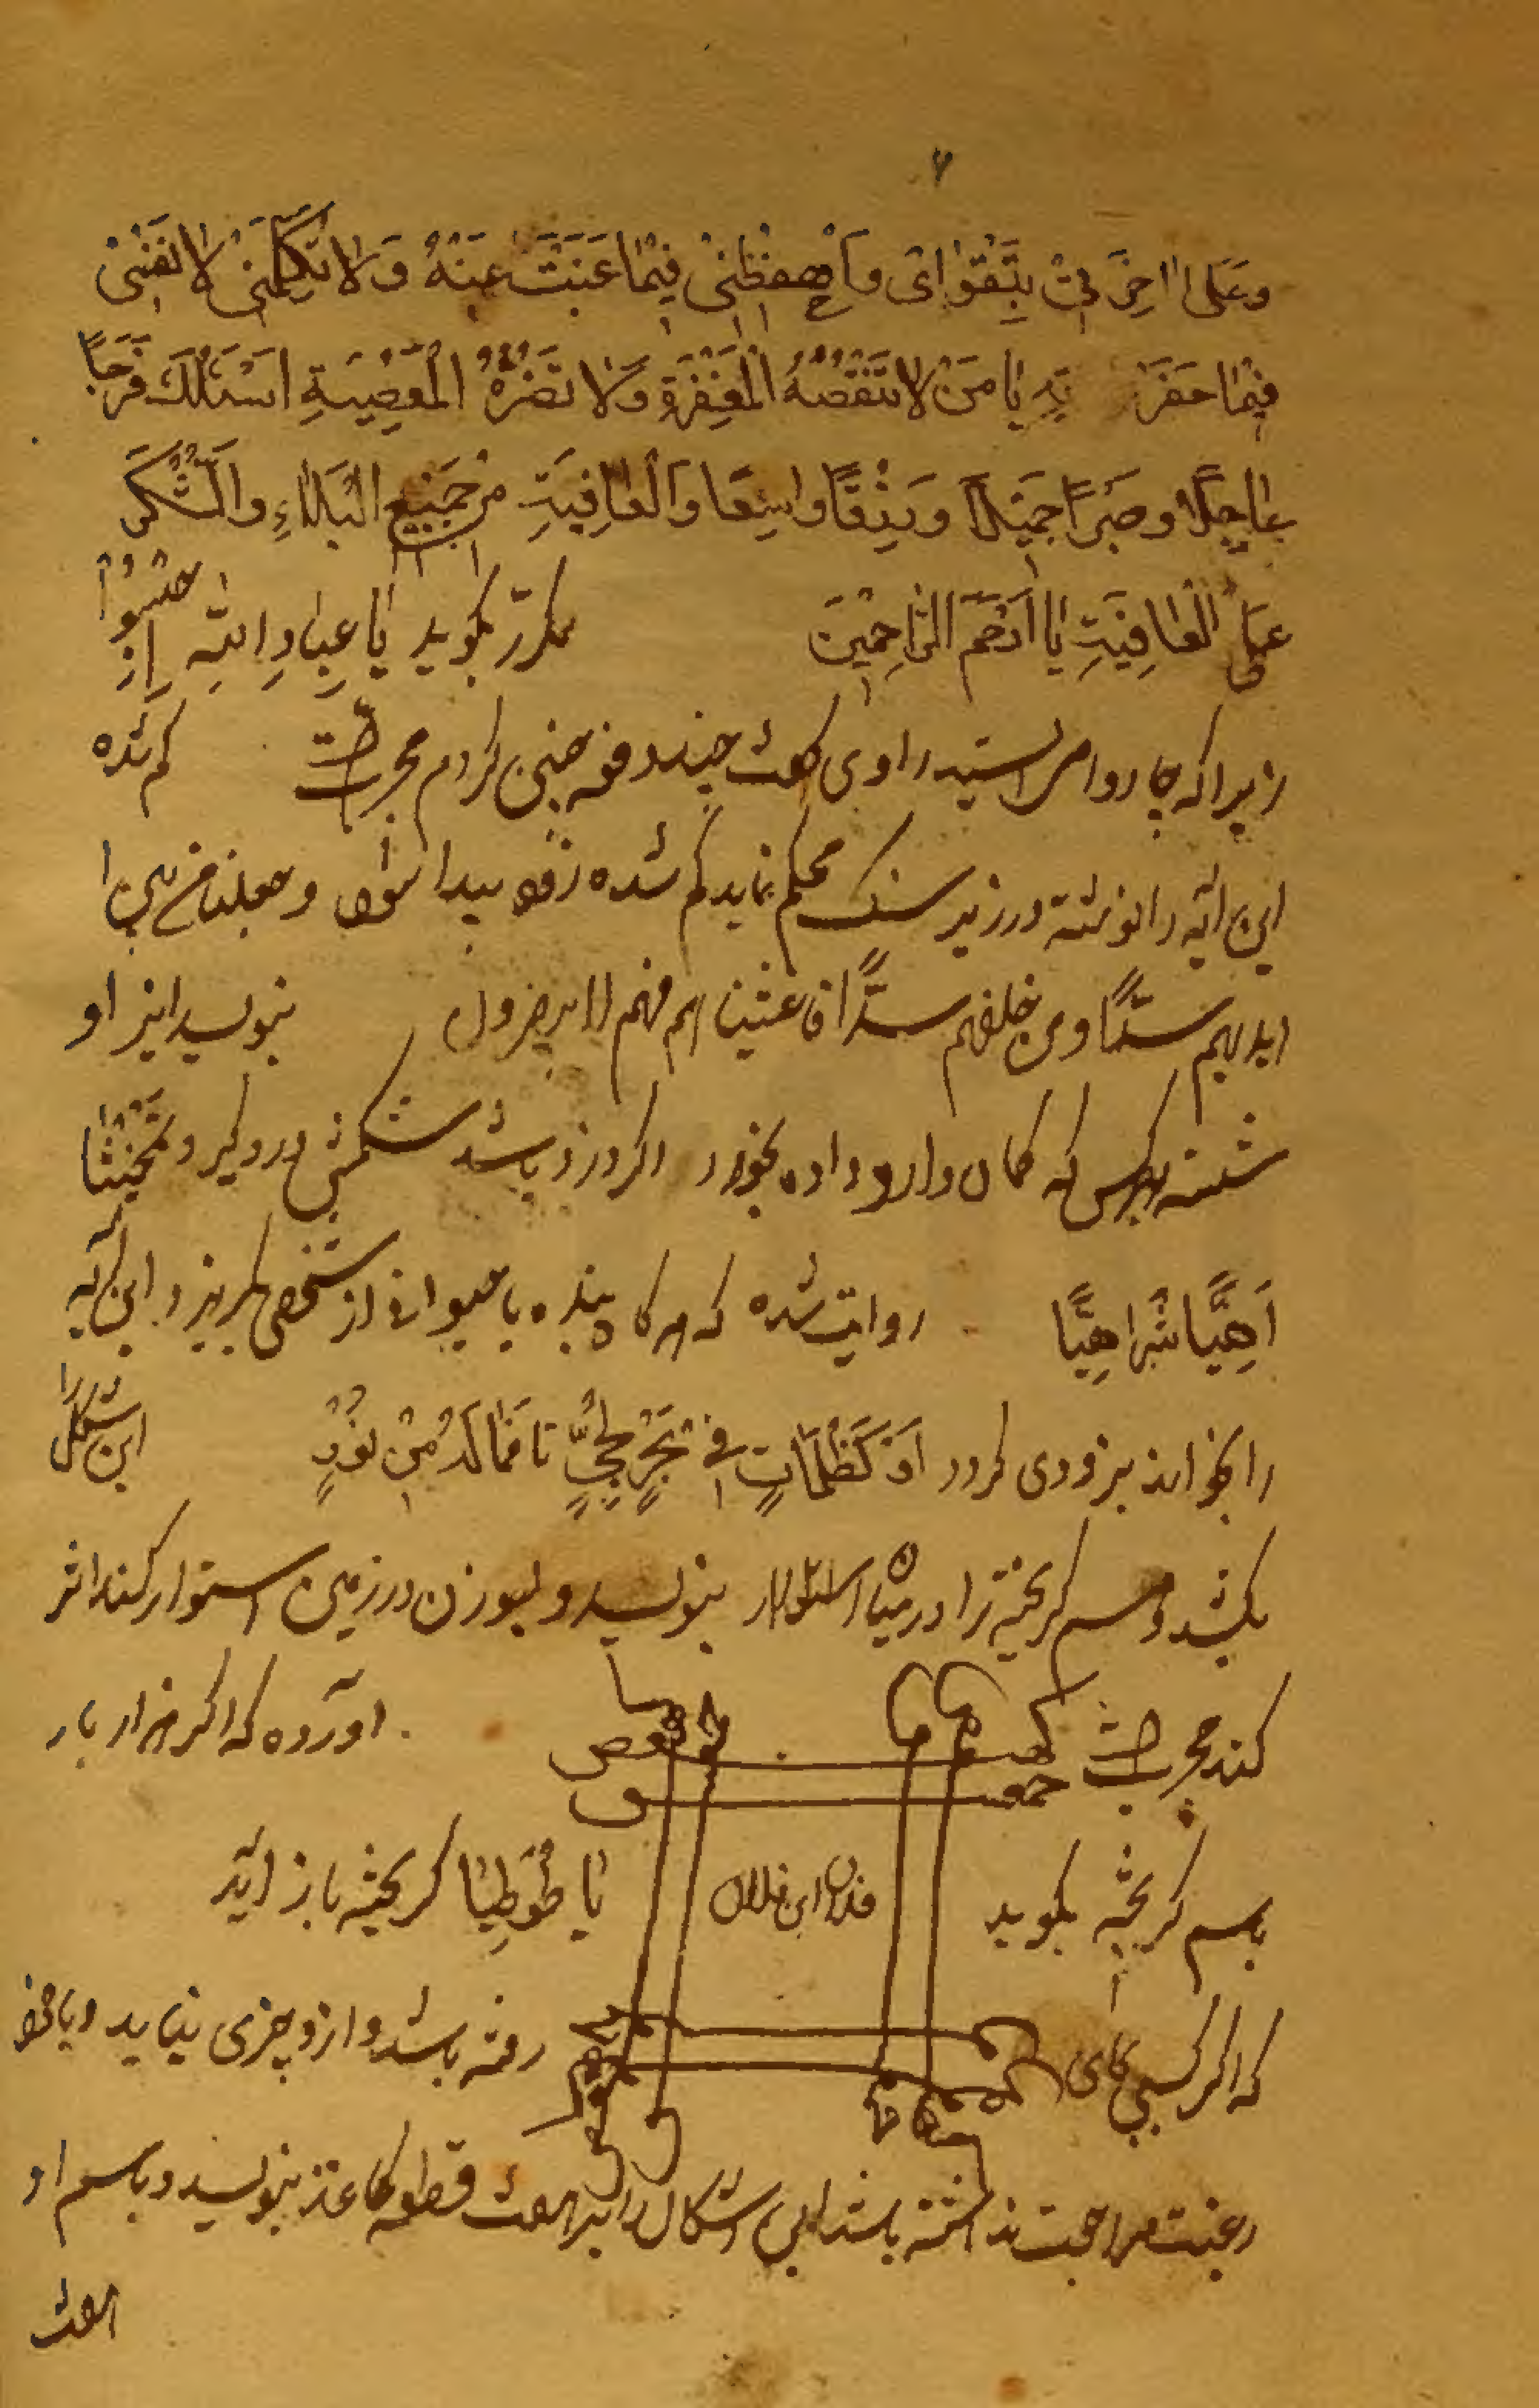 ۷
وَعَلٰی اٰخِرَتِیْ بِتَقْوٰایَ وَاحْفِظْنِیْ فِیْمٰا غَبْتَ عَنْهُ وَلا تَکِلْنِیْ لا نَفْسِیْ
فِیْمٰا حَضَرَ یٰا مَنْ لا تَنْقُصُهُ الْمَغْفِرَةِ وَلا تَضُرُّهُ الْمَعْصِیَةِ اَسْئَلُکَ فَرَجاً
عٰاجِلاً وَ صَبْراً جَمِیْلاً وَ رِزْقاً وٰاسِعاً وَالْعٰافِیَةِ مِنْ جَمِیْعِ الْبَلٰاءِ وَالْشُّکْرَ
عَلَی الْعٰافِیَةِ یٰا اَرْحَمَ الرّٰاحِمِیْنَ مکرّر بکوید یٰا عِبٰادِ اللّهِ اِحْبِسُوْا
زیرا که چاروا می ایستد راوی کفت چند دفعه چنین کردم مجرب است کم شده
این ایه را نوشته در زیر سنک محکم نماید کم شده زود پیدا شود وجعلنا من بین ا
ایدیهم سدًّا ومن خلفهم سدًّا فاغشیناهم فهم لا یبصرون بنویسد ایز او
شسته بهر کس که کمان دارد داده بخورد اگر دزد باشد شکمش درد کیرد تَمْخِیْثٰا
اَهِیًّا شَرٰاهِیًّا روایت شده که هرکاه بنده یا حیوانی از شخصی بکریزد این آیه
را بخواند بزودی کردد اَوْ کَظُلُمٰاتٍ فِیْ بَحْرٍ لُجِّیٍّ تا فَمٰا لَهُ مِنْ نُوْرٍ این شکل را
بکشد و اسم کریخته را در میان بنویسد و بسوزن در زمین استوار کند اثر
کند مجرب است کهیعص حمعسق اورده که اکر هزار بار
باسم کریخته بکوید فلان ابن فلان یٰا طُوْطِیٰا کریخته باز اید
که اکر کسی بجای رفته باشد و ازو چیزی نیاید و یا خود
رغبت مراجعت نداشته باشد این اشکال را بر هفت قطعه کاغذ بنویسد و باسم او
هفت